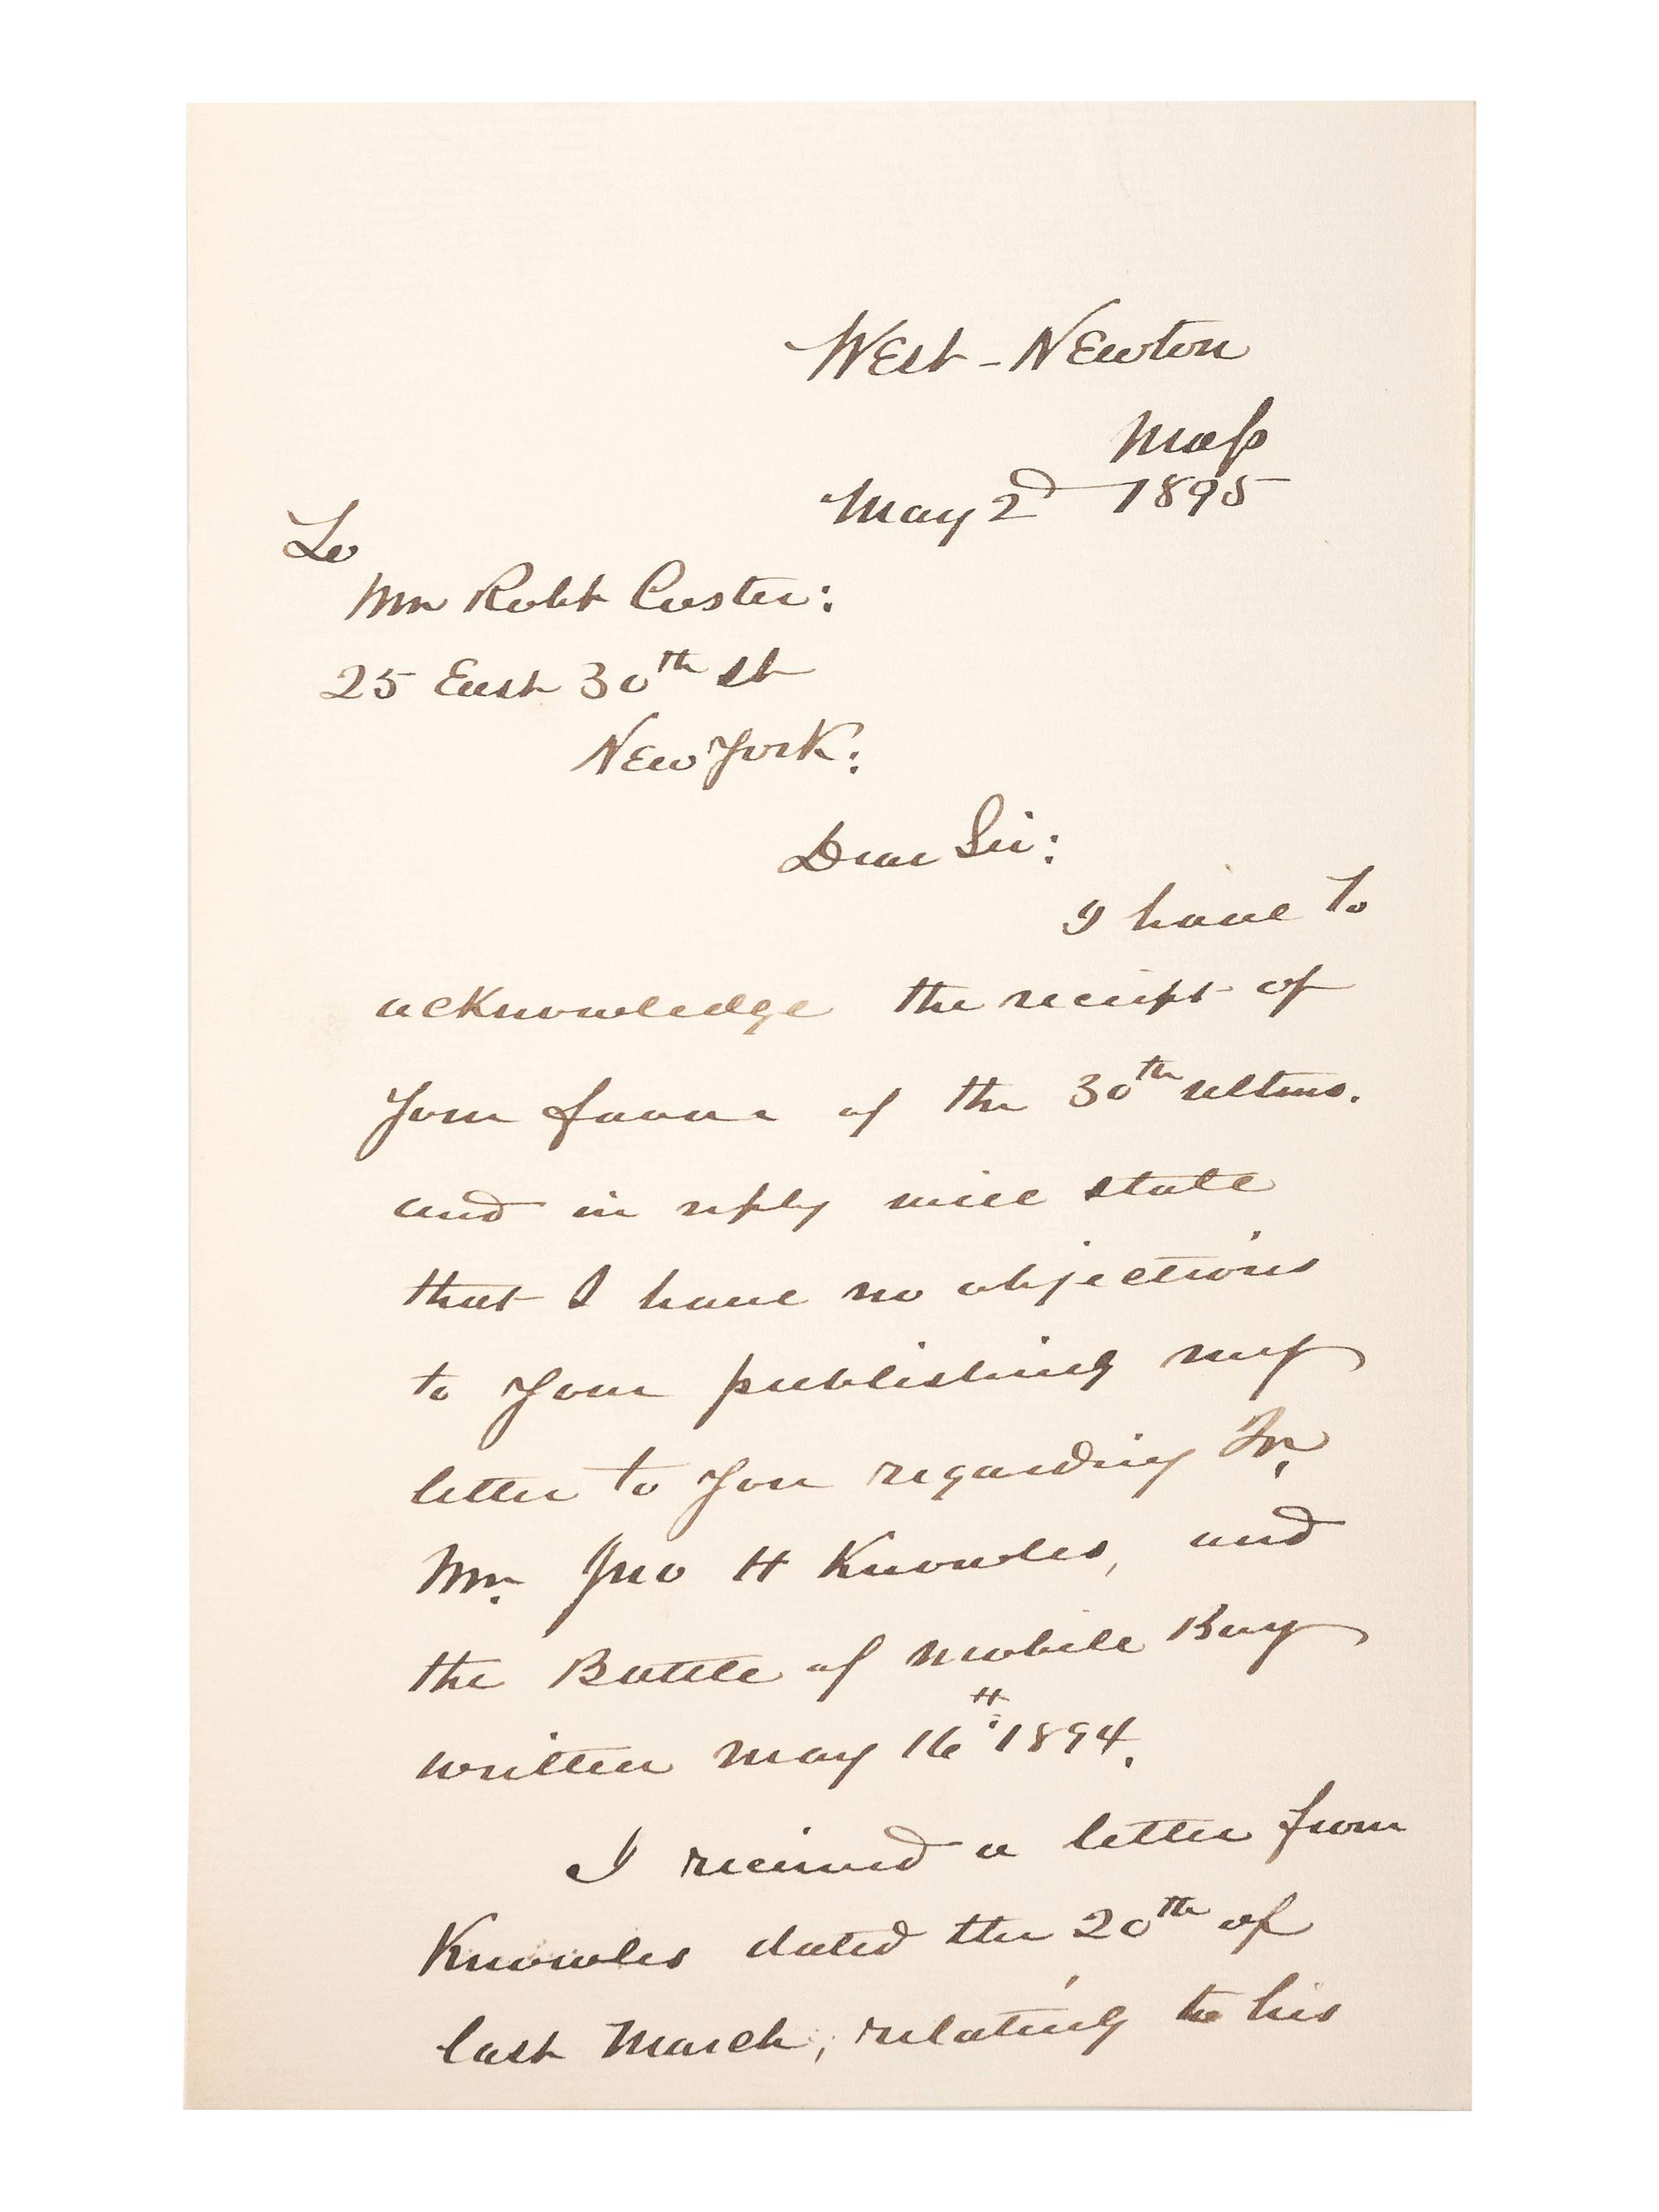 West-Newton
Mass
May 2d 1895
To
Mr Robt Custer:
25 East 30th st
New York:
Dear Sir:
I have to
acknowledge the receipt of
your favor of the 30th ultmo.
and in reply will state
that I have no objections
to your publishing my
letter to you regarding Fr.
Mr. Jno H Knowles, and
the Battle of Mobile Bay
written May 16th 1894.
I received a letter from
Knowles dated the 20th of
last March, relating to his